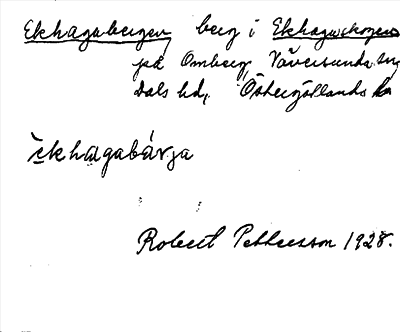 Ekhagabergen, berg i Ekhagaskogen
på Omberg, Väversunda sn,
Dals hd, Östergötlands län
èkhagabárja
Robert Pettersson 1928.